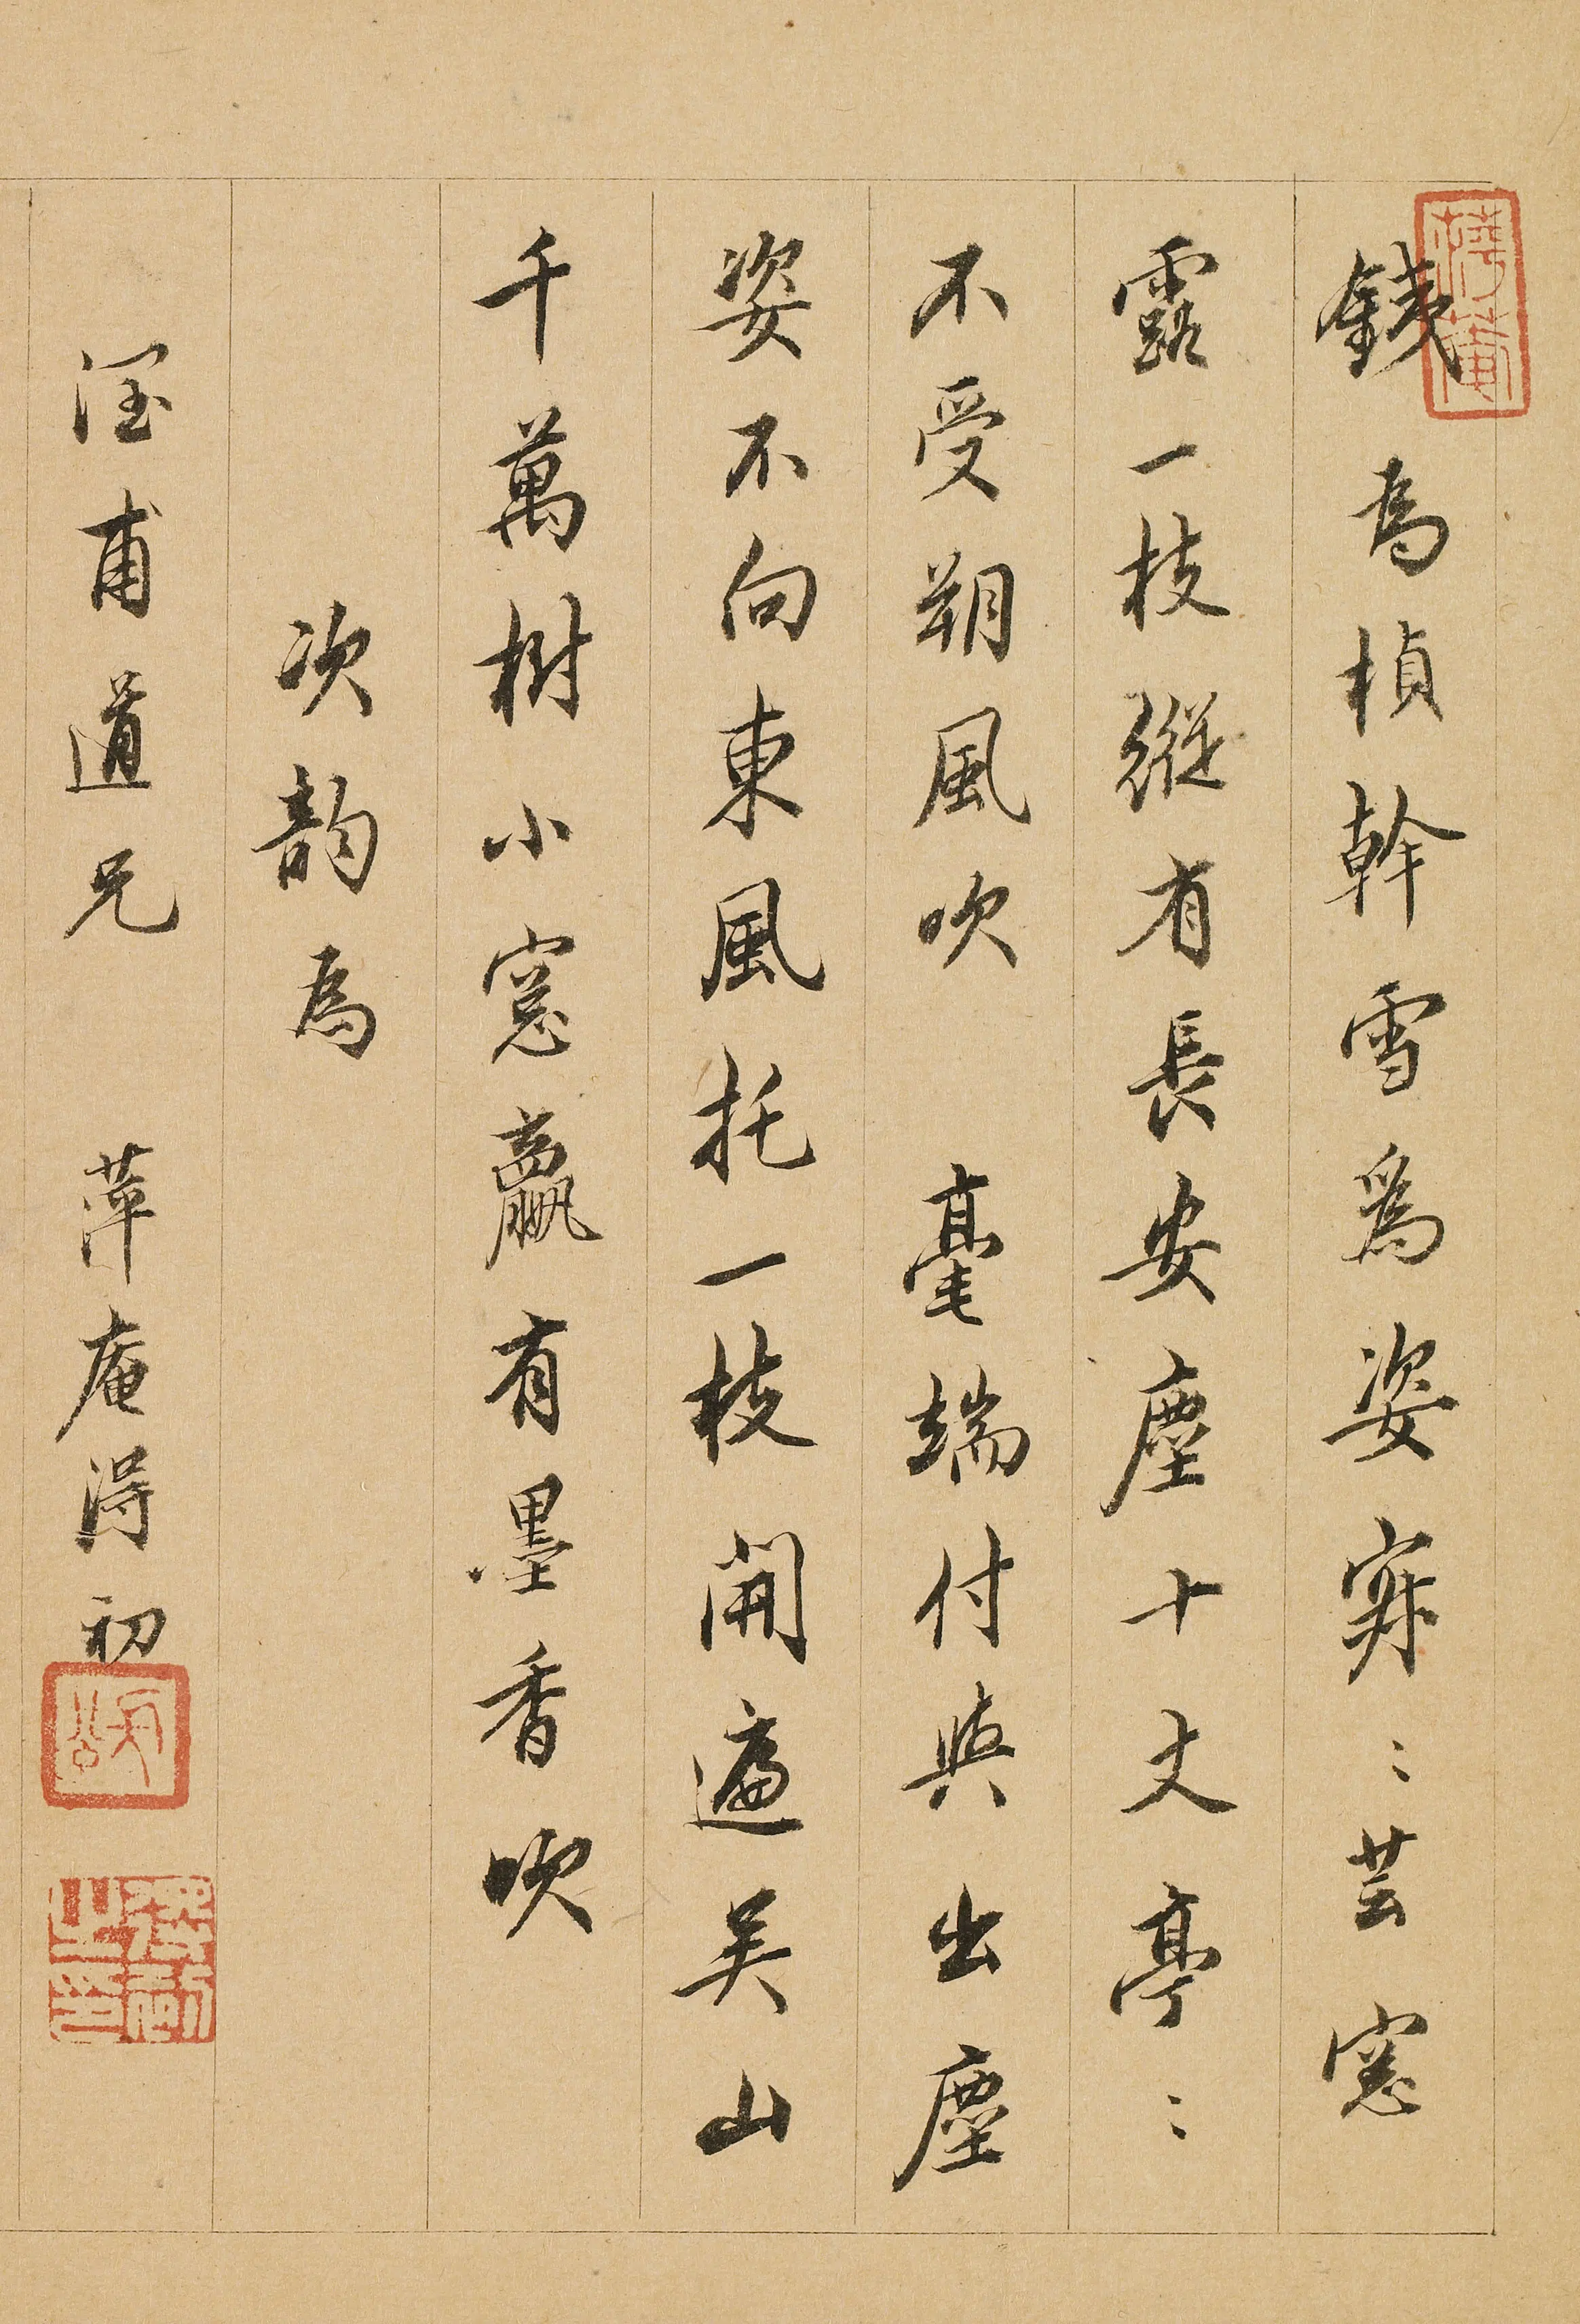 銕為楨幹雪為姿寂〻芸窓
露一枝縱有長安塵十丈亭〻
不受朔風吹 毫端付與出塵
姿不向東風托一枝開遍吴山
千萬樹小窓贏有墨香吹
次韵為
甫道兄 萍庵得初